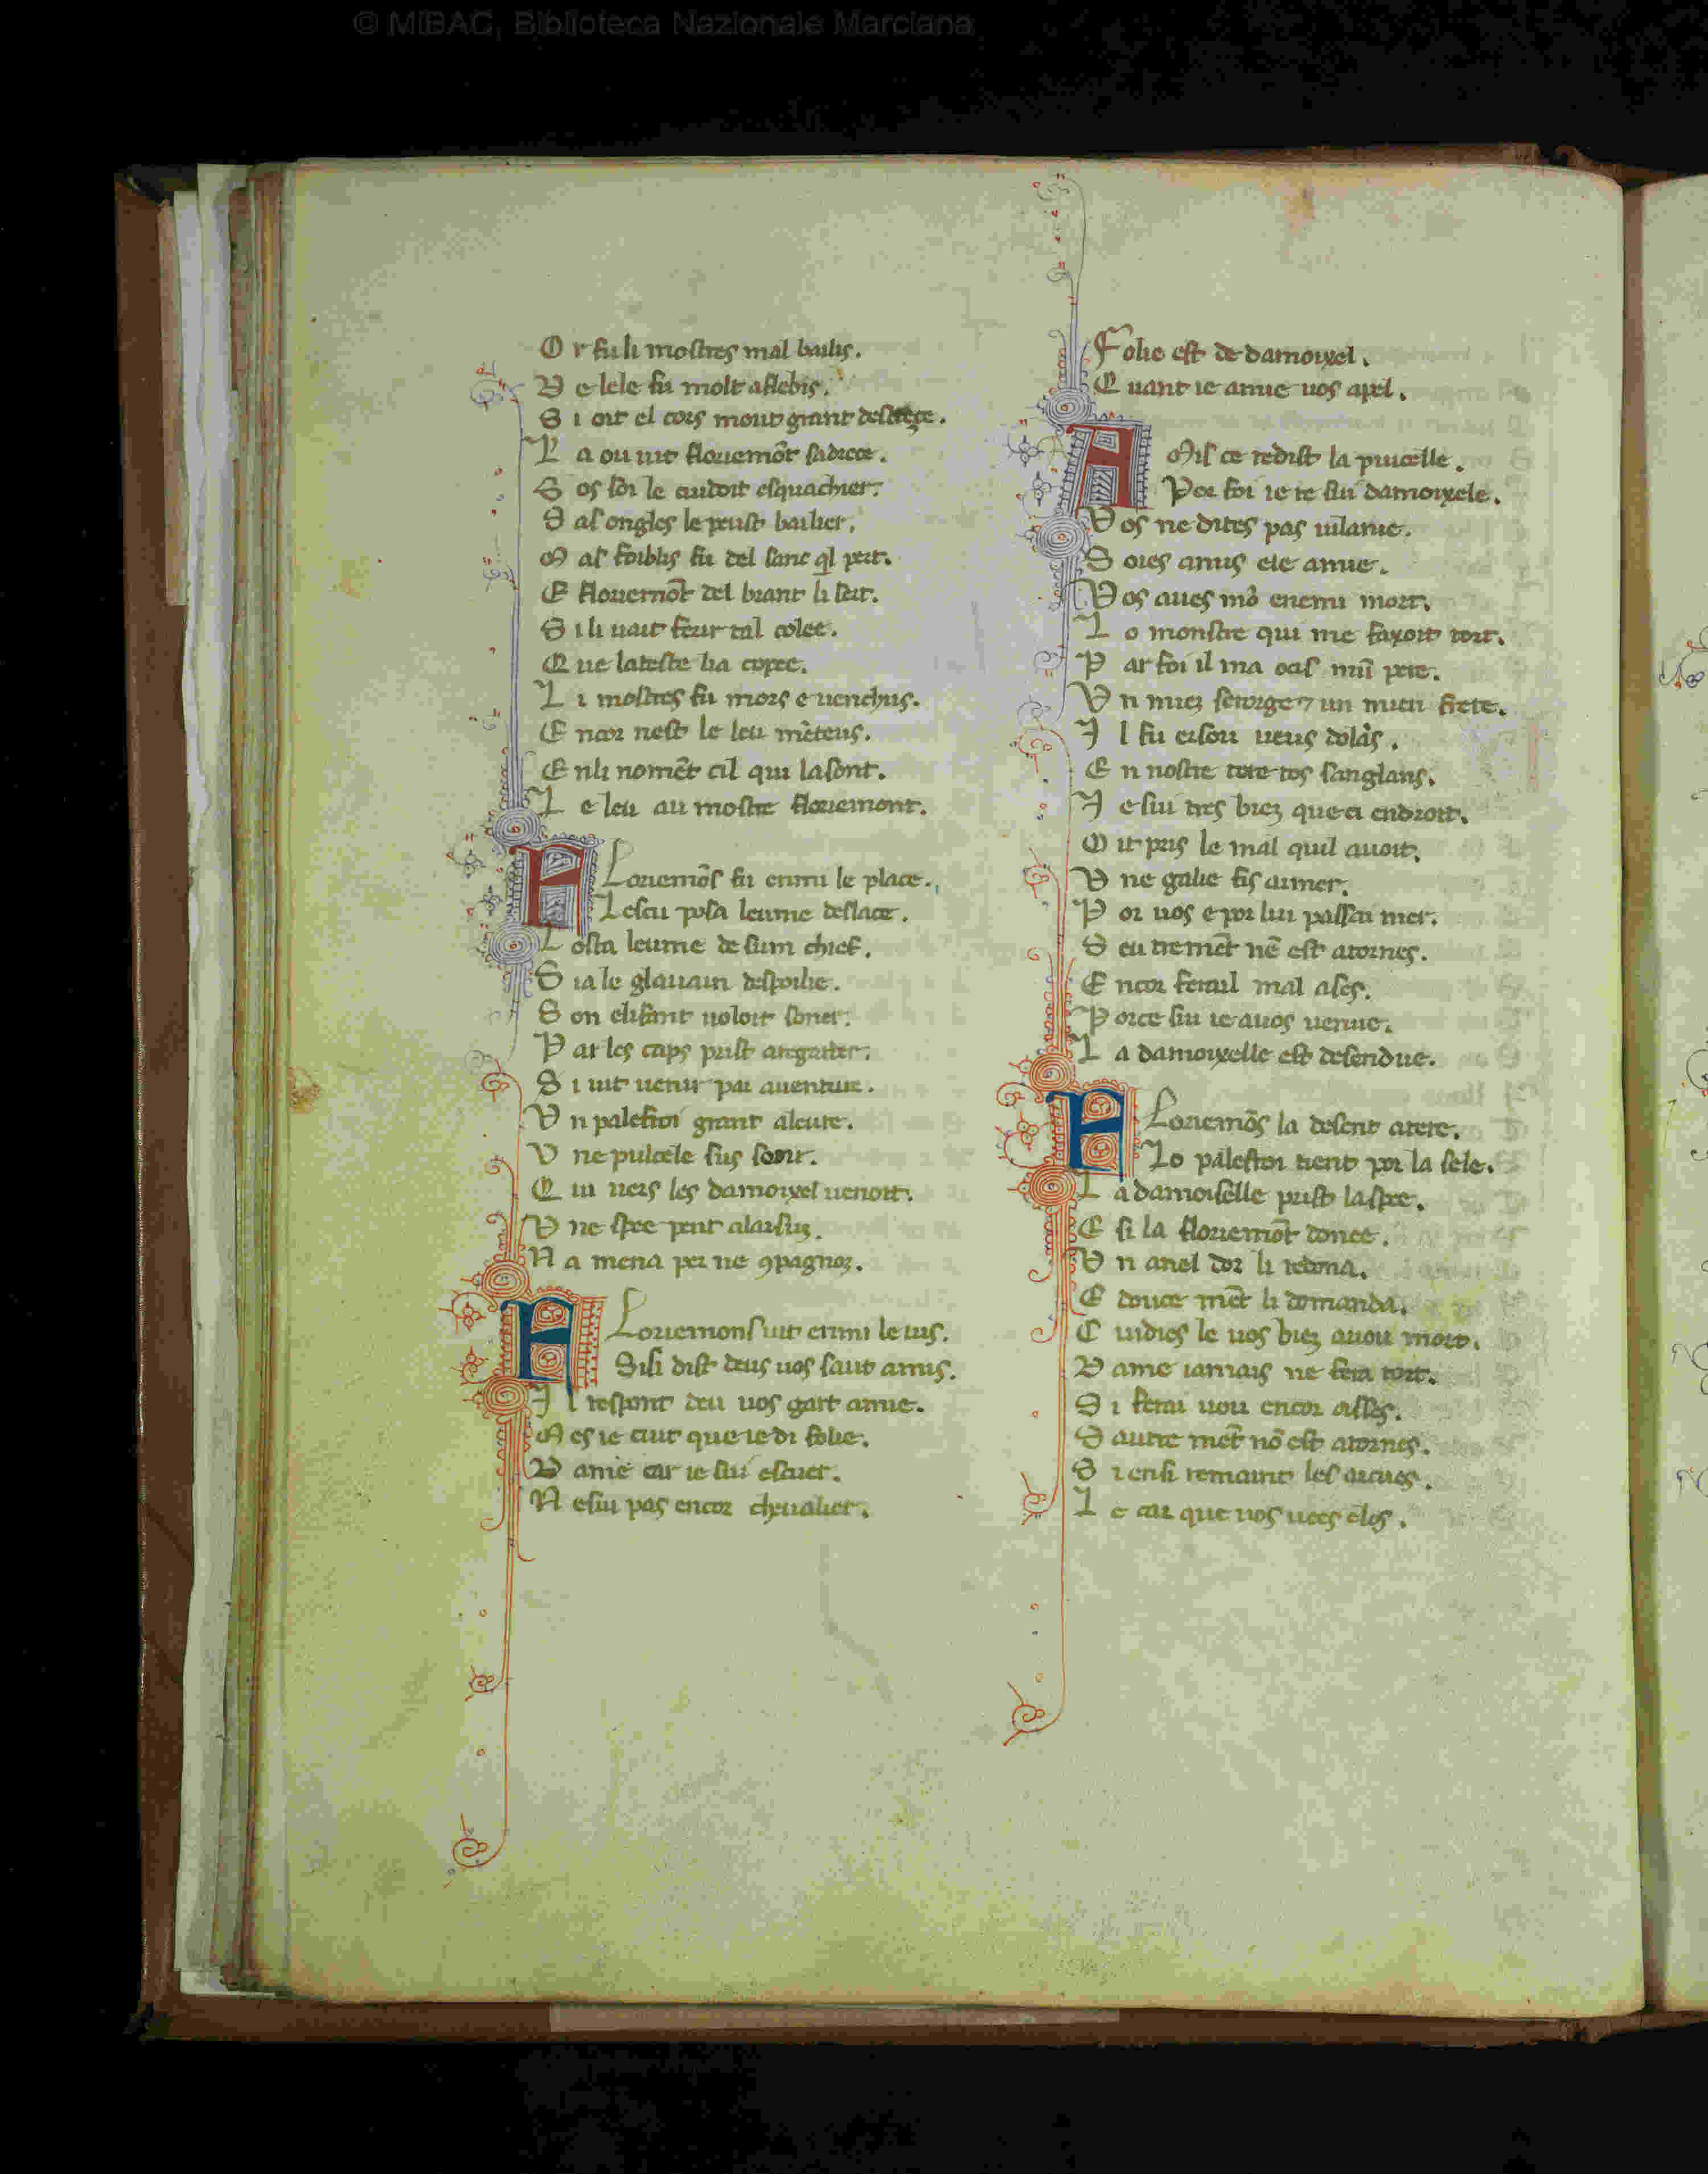 © MiBAC, Biblioteca Nazionale Marciana
O r fu li mostres mal bailis.
D e lele fu molt aflebis.
S i oit el cors mout grant
L a ou uit floriemōt sadrece.
S os soi le cuidoit esquachier.
D as ongles le peust bailier.
M as foiblis fu del sanc q̄l pert.
E floriemōt del brant li fert.
S i li uait ferir tal colee.
Q ue lateste lia copee.
L i mostres fu mors e uenchus.
E ncor nest le leu mēteus.
E nli nomēt cil qui lasont.
L e leu au mostre floriemont.
F Loriemōs fu enmi le place.
Lescu posa leume deslace.
L osta leume de sum chief.
S ia le glauain despoilie.
S on elifant uoloit soner.
P ar les caps prist aregarder.
S i uit uenir par auenture.
U n palefroi grant aleure.
U ne pulcele sus seoit.
Q ui uers les damoixel uenoit.
U ne spee pent alarsuz.
N a mena per ne ꝯpagnoz.
F Loriemons uit enmi le uis.
Sili dist deus uos saut amis.
I l respont deu uos gart amie.
M es ie cuit que ie di folie.
D ame car ie sui escuer.
N esiu pas encor cheualier.
F olie est de damoixel.
Q uant ie amie uos apel.
A Mis ce redist la pucelle.
Por foi ie re sui damoixele.
V os ne dites pas uilanie.
S oies amis e ie amie.
V os aues mō enemi mort.
L o monstre qui me faxoit tort.
P ar foi il ma ocis mū pere.
U n miez serorge ⁊ un mieu frere.
I l fu cison ueus dolās.
E n nostre tere tos sanglans.
I e sui tres biez que ci endroit.
O it pris le mal quil auoit.
U ne galie fis armer.
P or uos e por lui passai mer.
D eu tremēt nē est atornes.
E ncor ferail mal ases.
P orce siu ie auos uenue.
L a damoixelle est desendue.
F Loriemōs la desent arere.
Lo palefroi tient por la sele.
L a damoiselle prist laspee.
E si la floriemōt donee.
U n anel dor li redona.
E douce mēt li domanda.
C uidies le uos biez auoir mort.
D ame iamais ne fera tort.
S i ferai uou encor asses.
D autre mēt nō est atornes.
S i ensi remaint les
L e car que uos uees